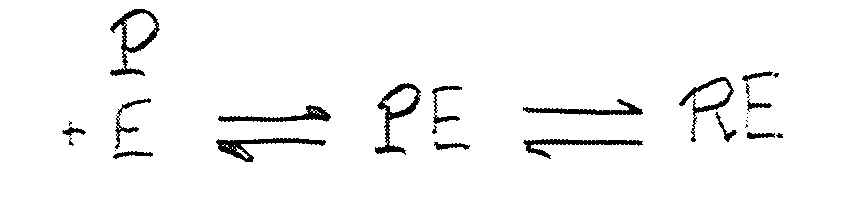 P
+ E ⇌ PE ⇌ RE